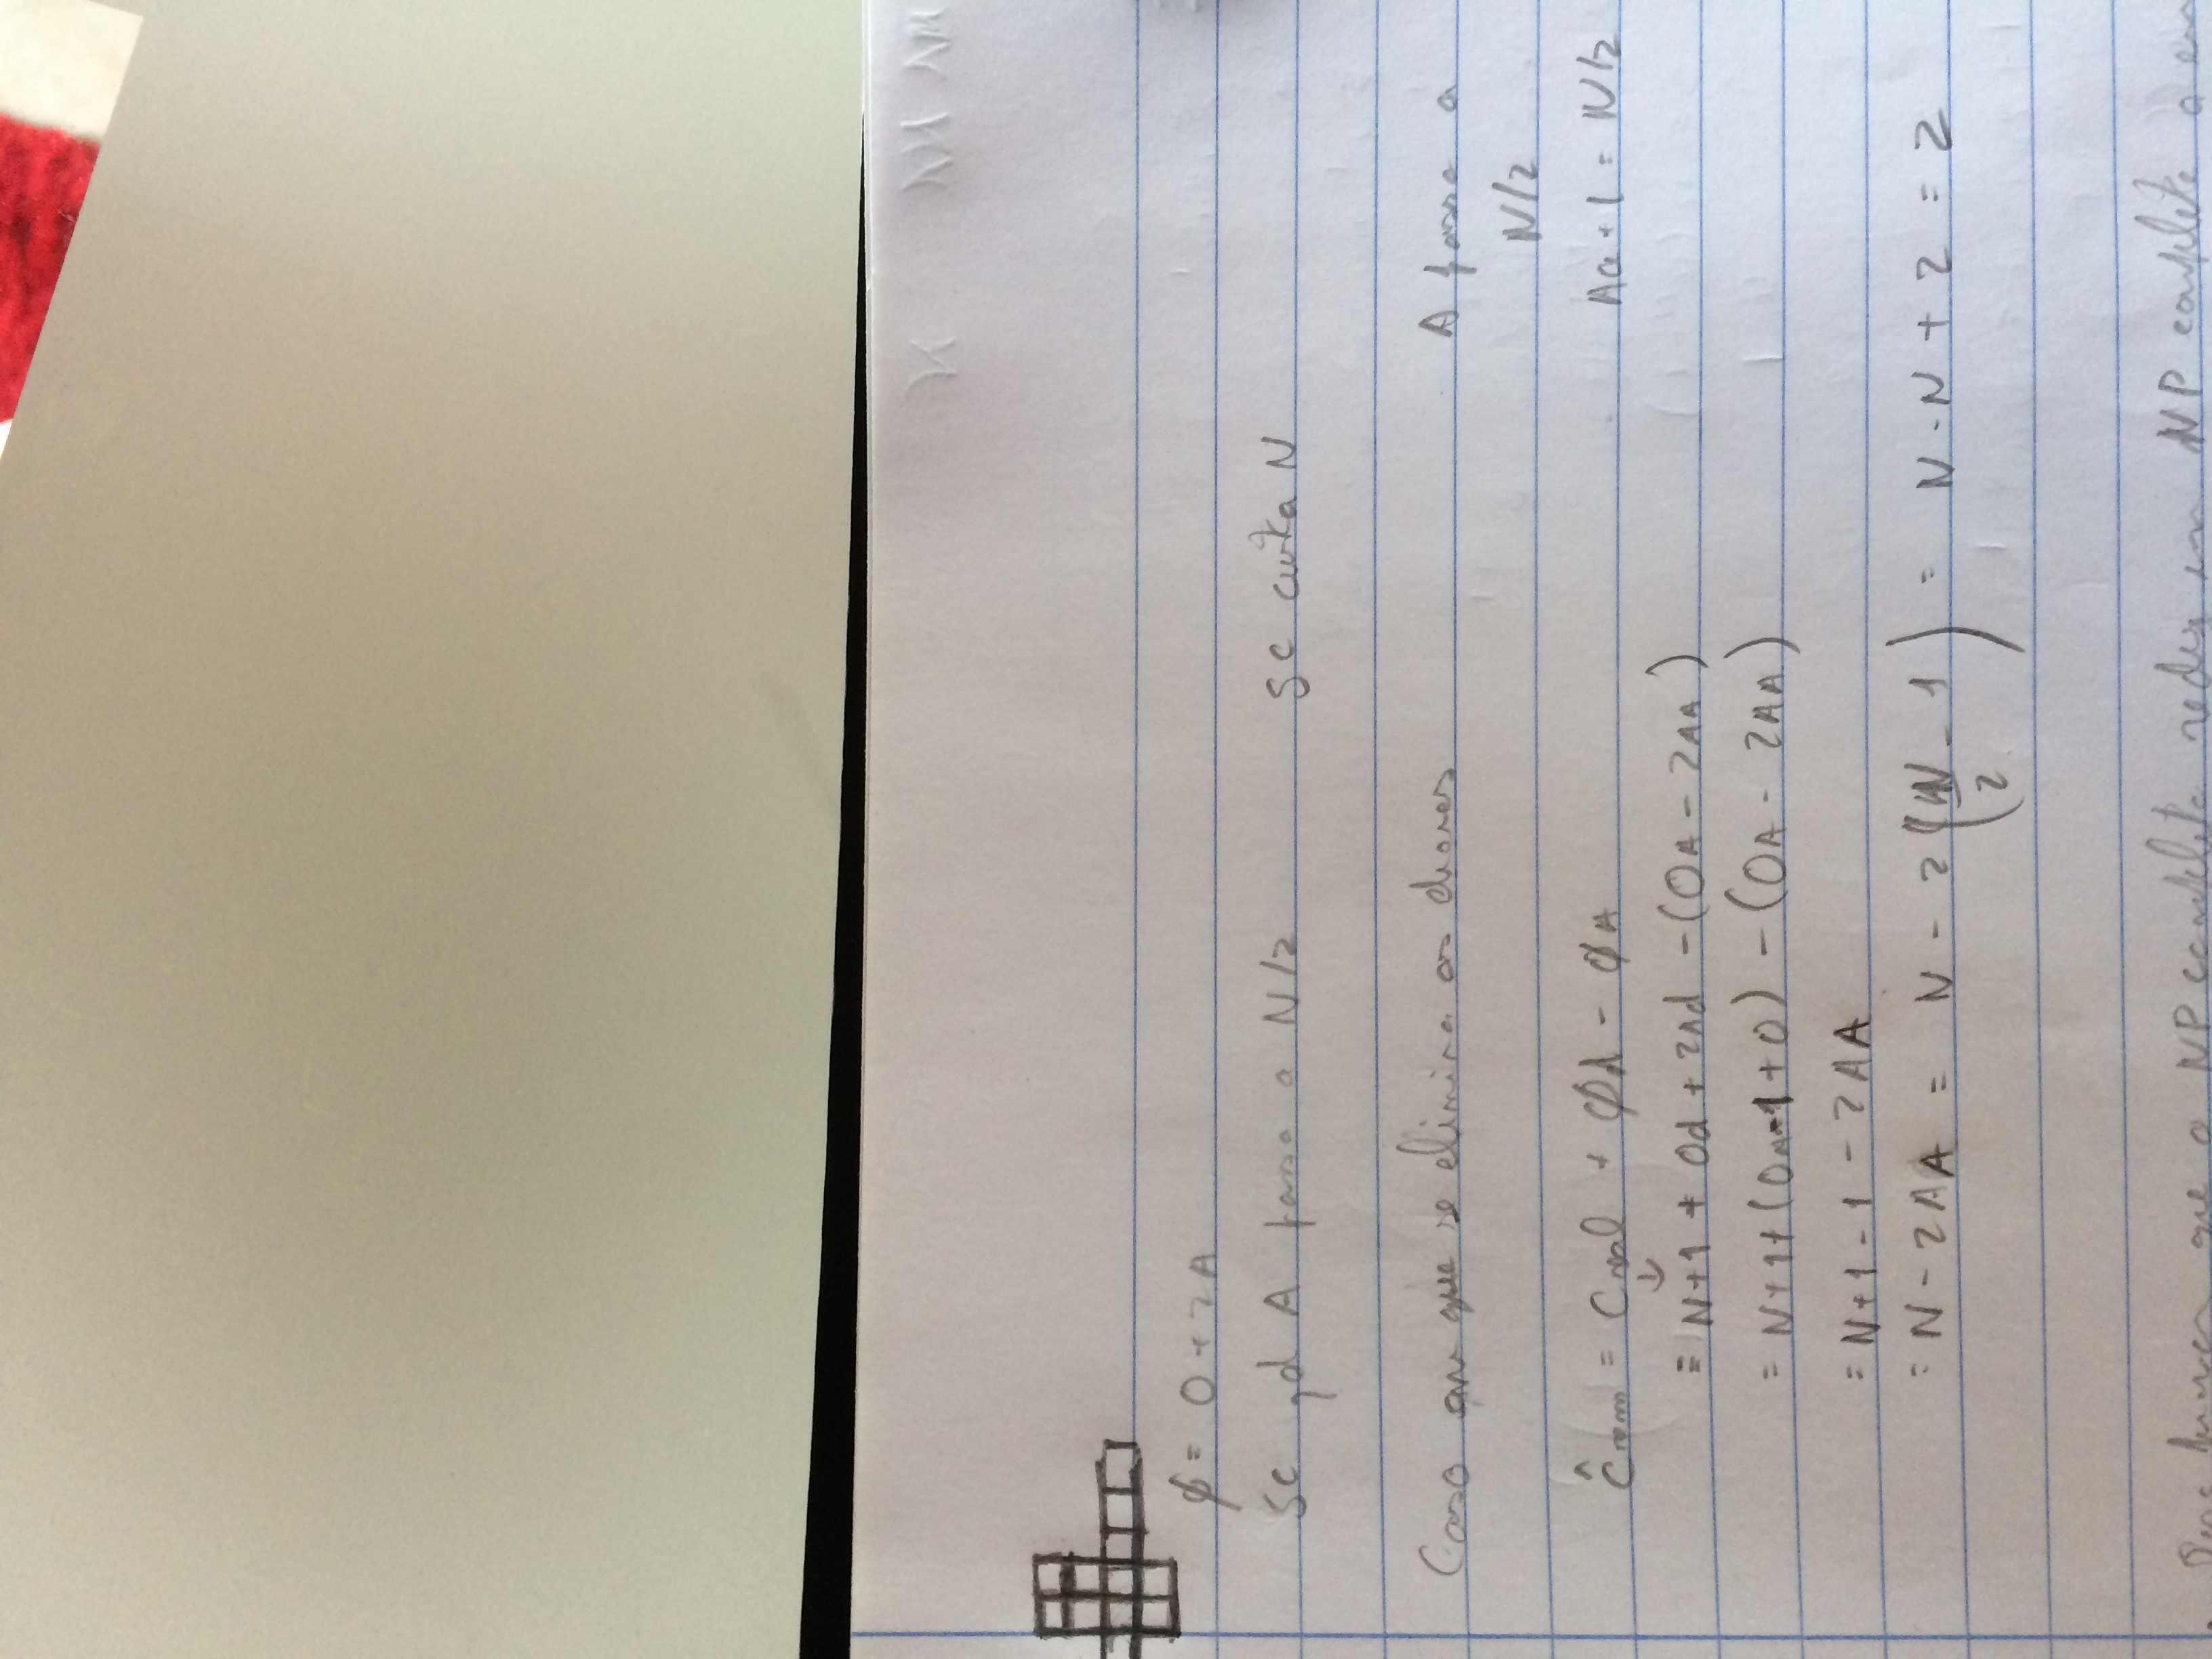 ϕ = O + 2A
Se d A passa a N/2    Se custa N
Caso em que se elimina as chaves    A passa a
N/2
Ĉrem = Creal + ϕd - ϕA    AA + 1 = N/2
↓
= N+1 + Od + 2Ad - (OA - 2AA)
= N+1+(OA-1+0) - (OA - 2AA)
= N+1-1 - 2AA
= N - 2AA = N - 2(N/2 - 1) = N - N + 2 = 2
que o NP completo em NP completo o